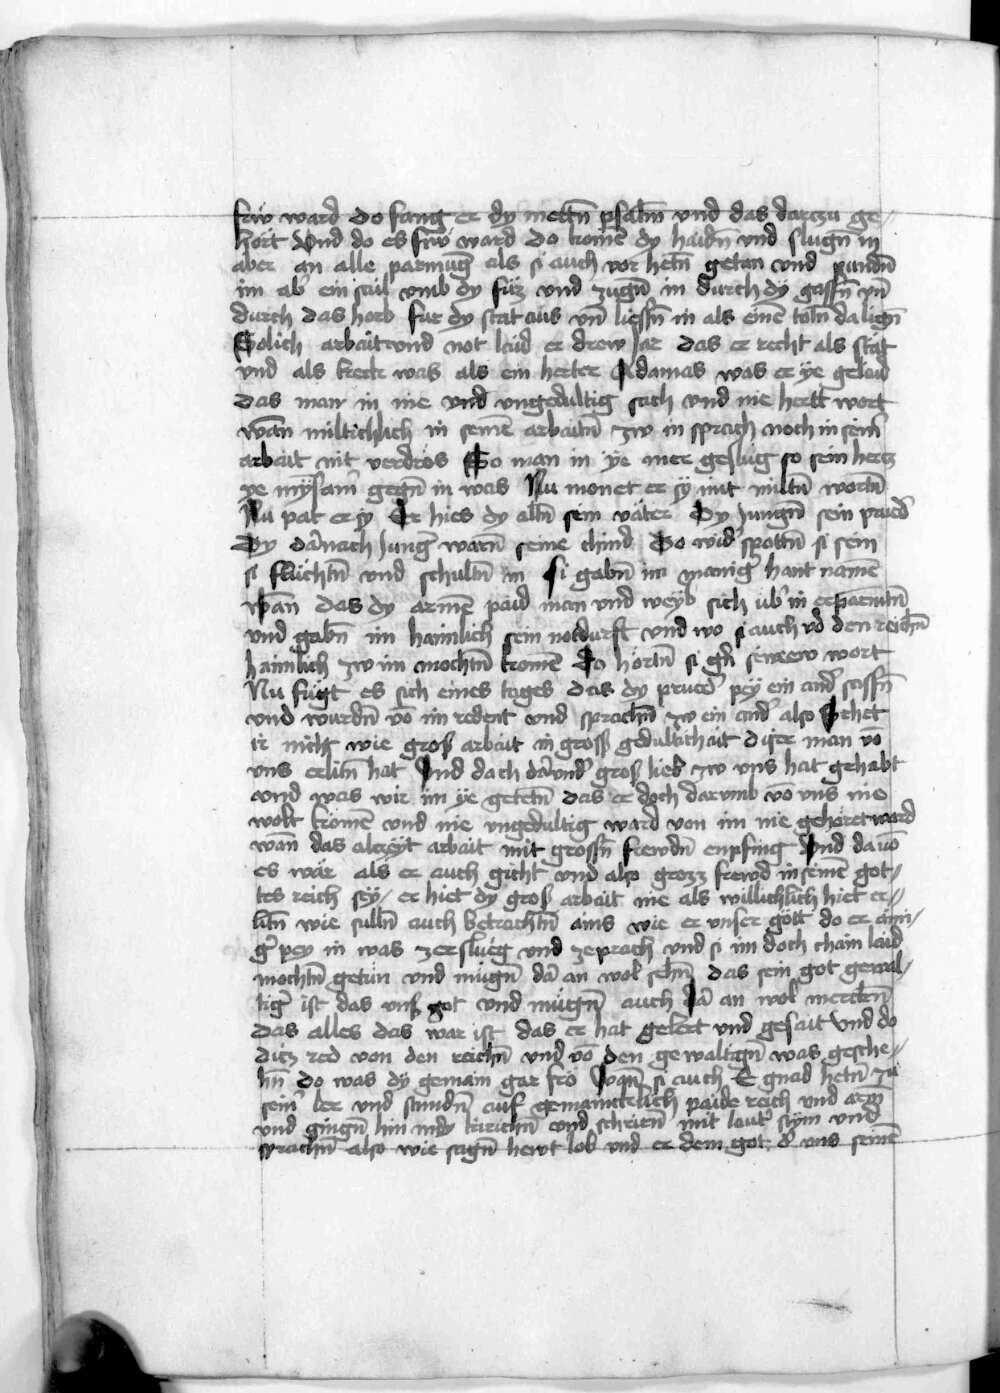 frw ward do sang er dy mettn̄ psalm̄ vnd das darczu ge„
hört Vnd do es frw ward Do komē dy haidn̄ vnd slugn̄ in
aber an alle parmūg als si auch vor hetn̄ getan vnd pundn̄
im ab̕ ein sail vmb dy füz vnd zugn̄ in durch dy gassn̄ vn̄
durch das horb für dy stat aus vn̄ liessn̄ in als einē totn̄ da lign̄
Solich arbait vnd not laid er drew Jar das er recht als stät
vnd als keckt was als ein herter Adamas was er ye gelaid
das man in nie vnd vngedultig sach vnd nie hertt wort
wan̄ miltichlich in seinē arbaitn̄ zw in sprach noch in sein̄
arbait nit verdros So man in ye mer geslug so sein hercz
ye mÿsam̄ gegn̄ in was Nu monet er sÿ mit miltn̄ wortn̄
Nu pat er sy Er hies dy altn̄ sein väter Dy Jungn̄ sein prued̕
Dy dan̄ach Jung̕ warn̄ seine chind Do wid̕ spottn̄ si sein
si fluchtn̄ vnd schultn̄ in Si gabn̄ im manig̕ hant namē
wan̄ das dy armē paid man vnd weyb sich üb̕ in erparmtn̄
vnd gabn̄ im haimlich sein notdurft vnd wo si auch vō den reichn̄
haimlich zw im mochtn̄ komē Do hörtn̄ si gn̄ seinew wort
Nu fügt es sich eines tages das dy prued̕ pey ein and̕ sassn̄
vnd wurdn̄ vō im redent vnd sprachn̄ zw ein and̕ also Sehet
ir nicht wie gros arbait in gross gedultichait diser man vō
vns erlitn̄ hat Vnd dach darund̕ gros lieb zw vns hat gehabt
vnd was wir im ye getetn̄ das er doch darumb vō vns nie
wolt komē vnd nie vngedultig ward von im nie gehöret ward
wan̄ das alczeyt arbait mit grossn̄ frewdn̄ enpfing Vnd da vō
es wär als er auch gicht vnd also grozz frewd in seinē got„
tes reich sey / er hiet dy gros arbait nie als willichlich hiet er„
litn̄ wie sulln̄ auch betrachtn̄ ains wie er vnser gött do er aini„
g̕ pey in was zersluēg vnd zeprach vnd si im doch chain laid
mochtn̄ getün vnd mugn̄ da an wol sehn̄ das sein got gewal„
tig̕ ist das vns̕ got vnd mugn̄ auch da an wol merckn̄
das alles das war ist das er hat gelert vnd gesait Vnd do
ditz red von den reichn̄ vnd vō den gewaltign̄ was gesche„
hn̄ Do was dy gemain gar fro wan̄ si auch E gnad hetn̄ zu
sein̄ ler vnd stundn̄ auf gemaincklich paide reich vnd arm
vnd gingn̄ hin in dy kirichn̄ vnd schrirn̄ mit laut̕ stym vnd
sprachn̄ also wie sagn̄ hewt lob vnd er dem got d̕ vns seinē